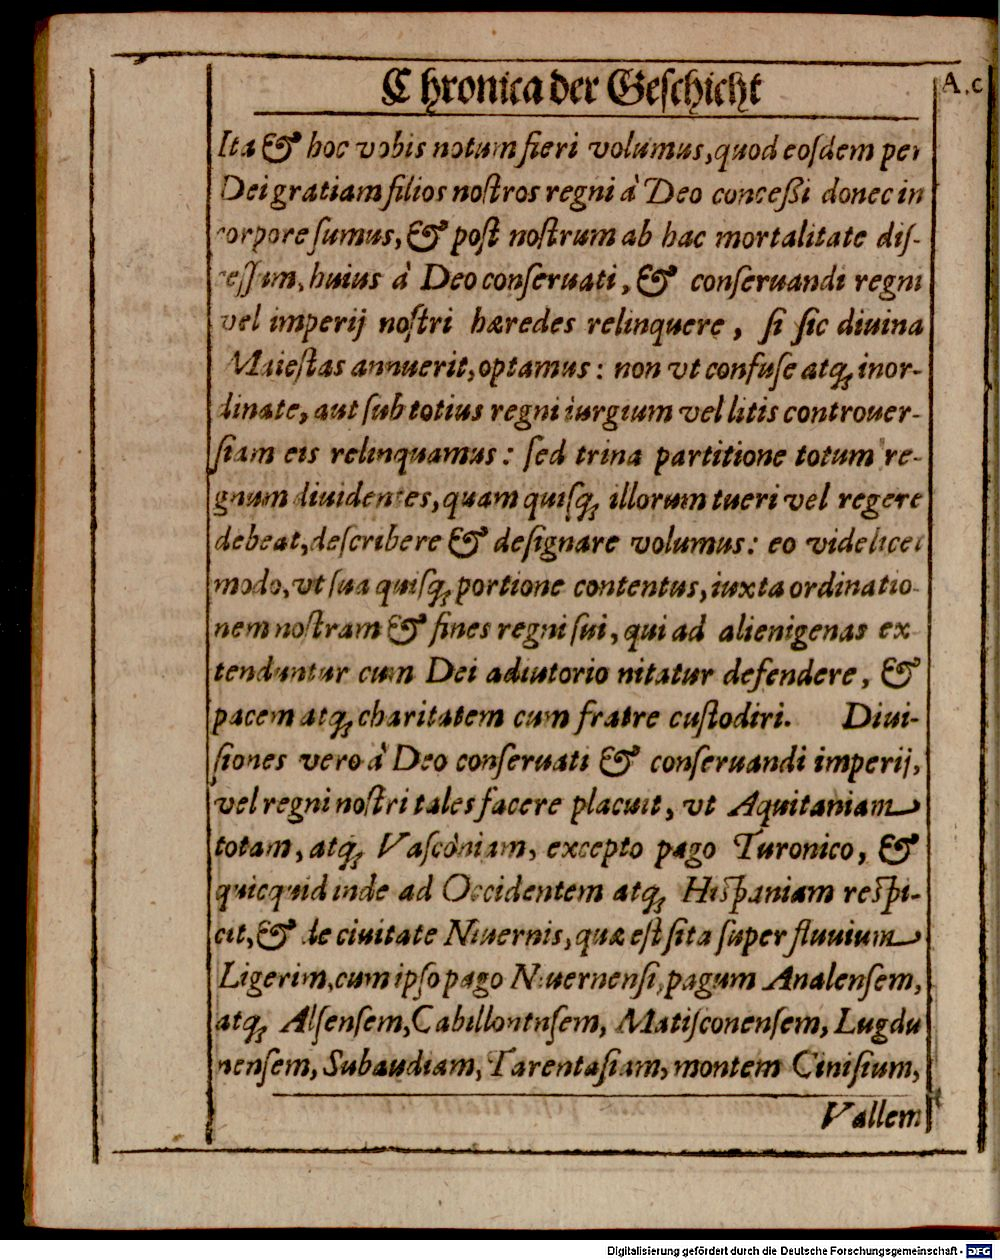 Chronica der Geschicht
A. c
Ita & hoc vobis notum fieri volumus, quod eoſdem per
Dei gratiam filios noſtros regni à Deo conceßi donec in
corpore ſumus, & poſt noſtrum ab hac mortalitate diſ-
ceſſum, huius à Deo conſeruati, & conſeruandi regni
vel imperij noſtri hæredes relinquere, ſi ſic diuina
Maieſtas annuerit, optamus: non vt confuſe atq; inor-
dinate, aut ſub totius regni iurgium vel litis controuer-
ſiam eis relinquamus: ſed trina partitione totum re-
gnum diuidentes, quam quiſq; illorum tueri vel regere
debeat, deſcribere & deſignare volumus: eo videlicet
modo, vt ſua quiſq; portione contentus, iuxta ordinatio
nem noſtram & fines regni ſui, qui ad alienigenas ex
tenduntur cum Dei adiutorio nitatur defendere, &
pacem atq; charitatem cum fratre cuſtodiri. Diui-
ſiones vero à Deo conſeruati & conſeruandi imperij,
vel regni noſtri tales facere placuit, vt Aquitaniam
totam, atq; Vaſconiam, excepto pago Turonico, &
quicquid inde ad Occidentem atq; Hiſpaniam reſpi-
cit, & de ciuitate Niuernis, quæ eſt ſita ſuper fluuium
Ligerim, cum ipſo pago Niuernenſi, pagum Analenſem,
atq; Alſenſem, Cabillontnſem, Matiſconenſem, Lugdu
nenſem, Subaudiam, Tarentaſiam, montem Ciniſium,
Vallem
Digitalisierung gefördert durch die Deutsche Forschungsgemeinschaft - DFG